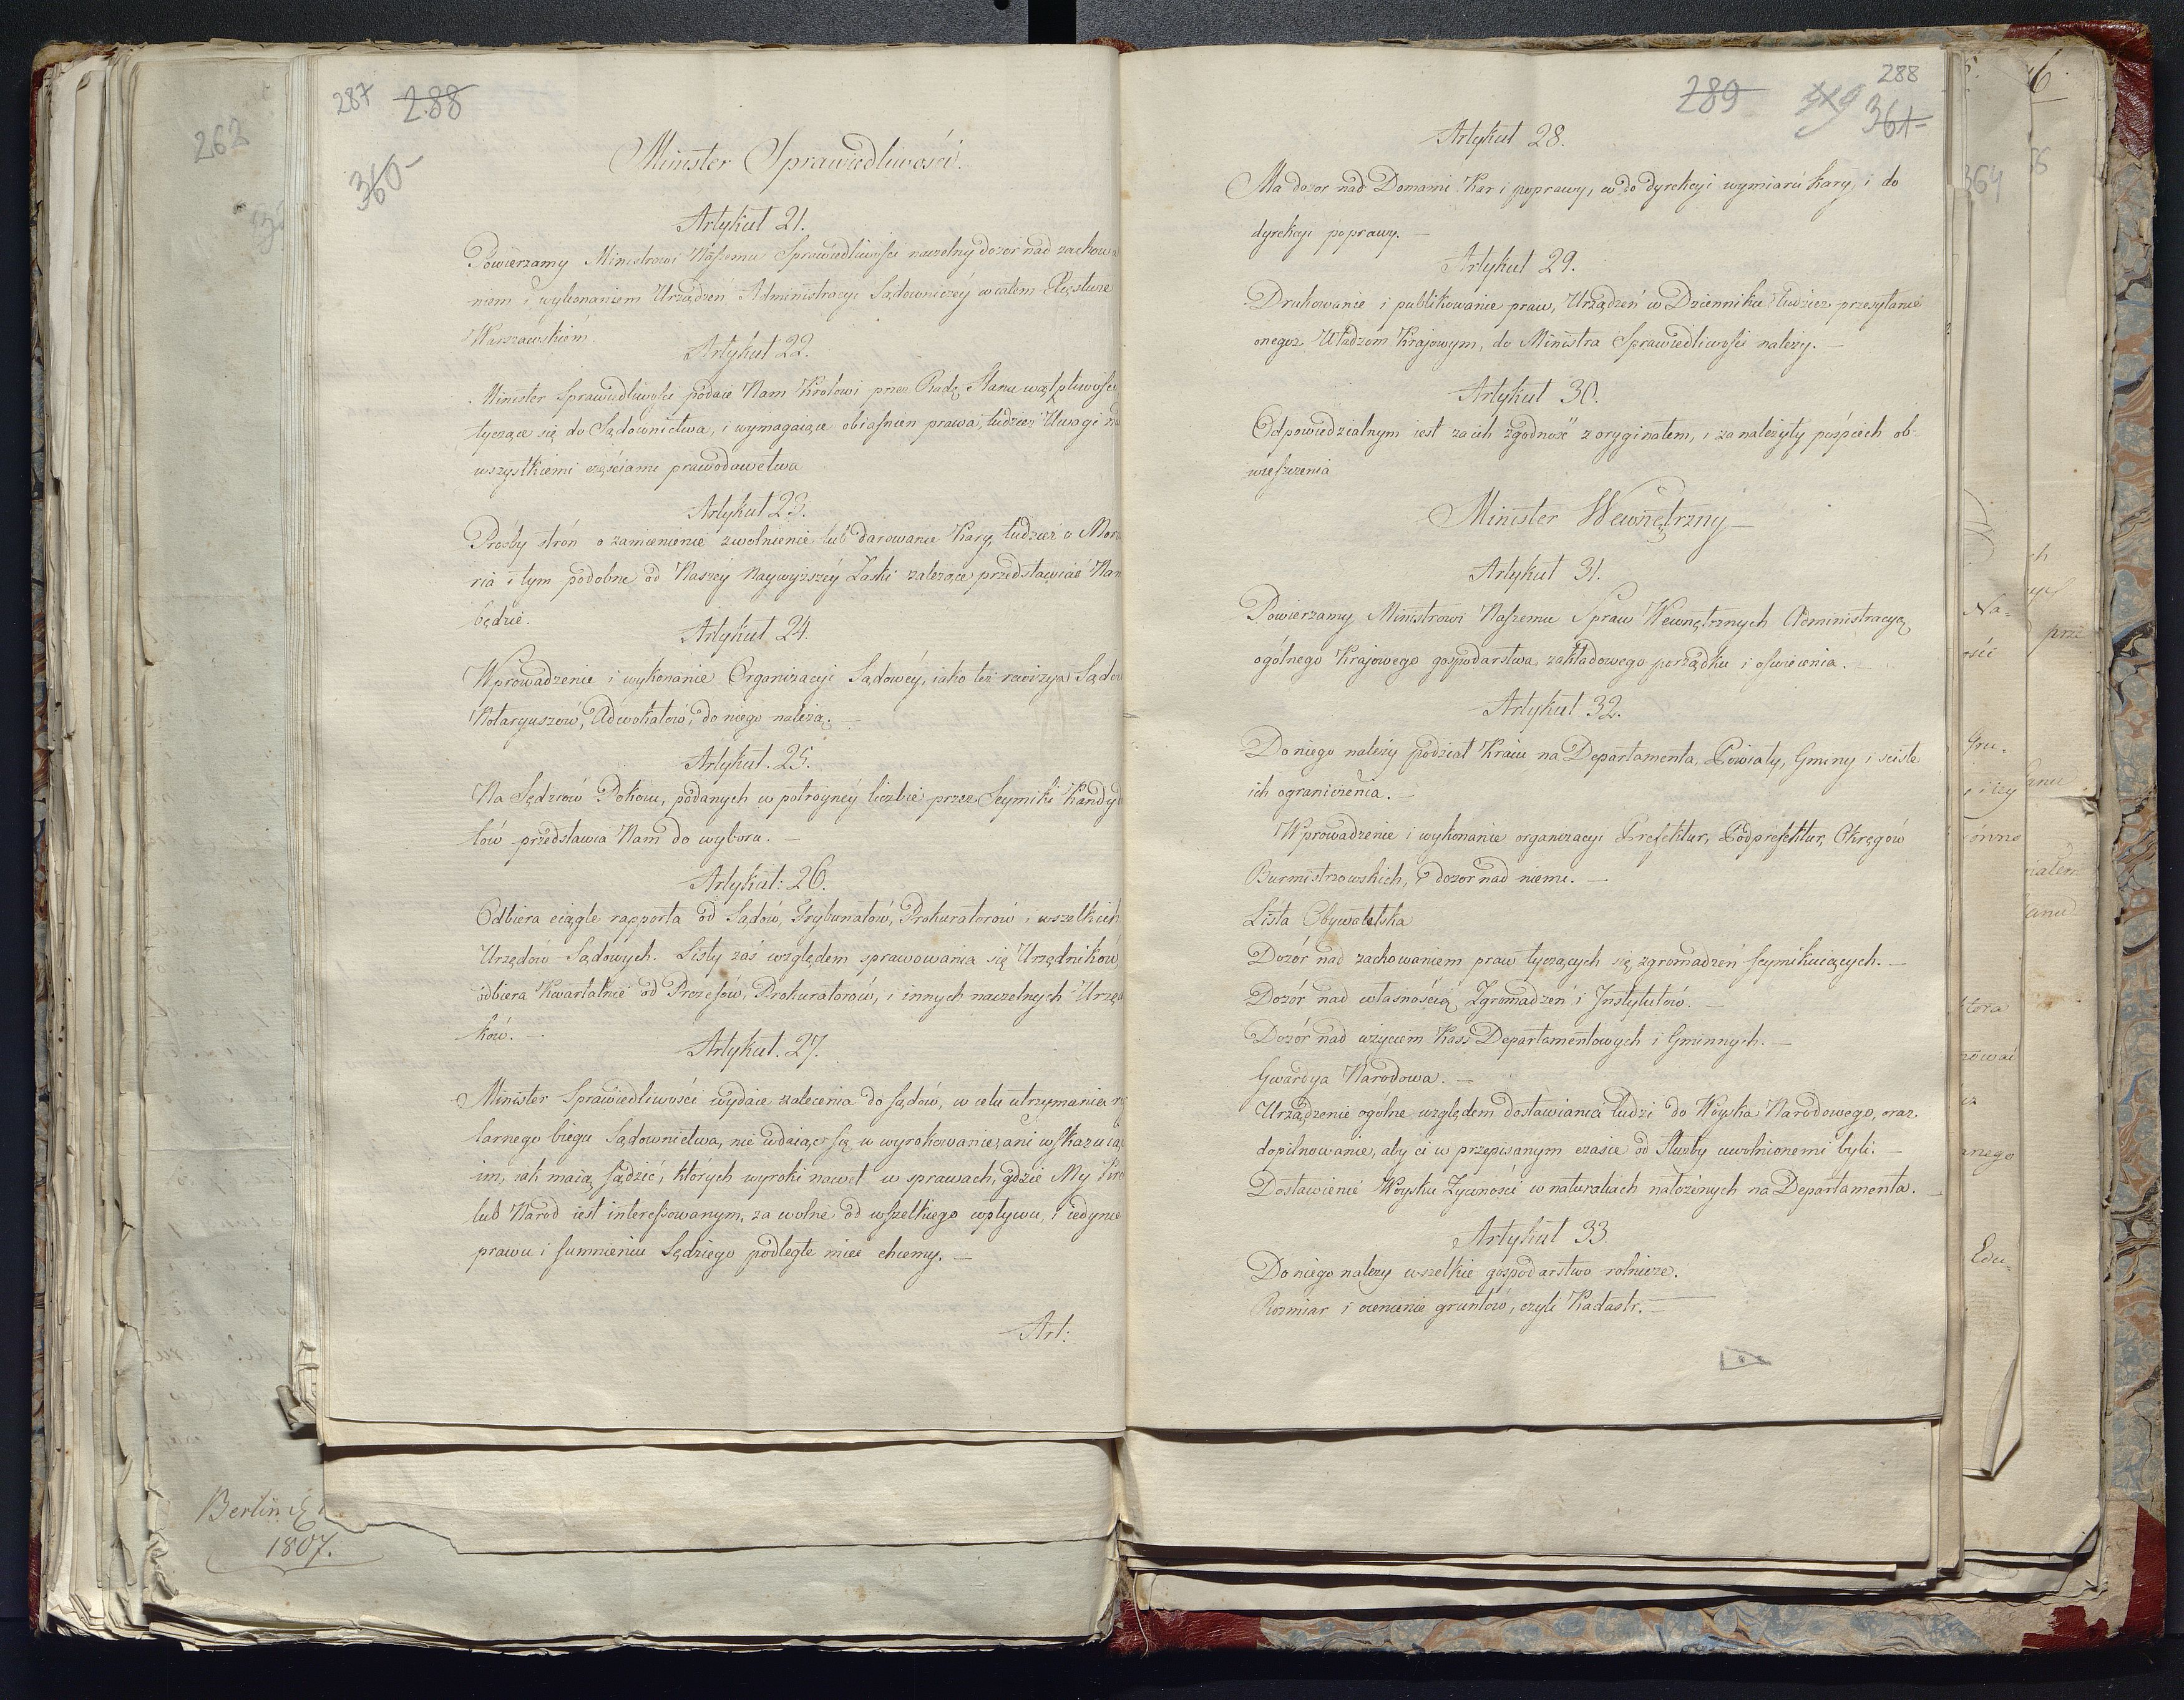 262
Berlin
1807.
287 288
360
Minister Sprawiedliwości.
Artykuł 21.
Powierzamy Ministrowi Naszemu Sprawiedliwości naczelny dozor nad zachowa
niem i wykonaniem Urządzen Administracyi Sądowniczéy w całem Xięstwie
Warszawskiem.
Artykuł 22.
Minister Sprawiedliwości podaie Nam Królowi przez Radę Stanu wątpliwości
tyczące się do Sądownictwa, i wymagaiące obiaśnien prawa, tudzież Uwagi na
wszystkiemi częściami prawodawctwa
Artykuł 23.
Prośby strón o zamienienie zwolnienie lub darowanie Kary, tudzież o Mora
ria i tym podobne od Naszéy Naywyższéy Łaski zależące przedstawiać Nam
będzie.
Artykuł 24.
Wprowadzenie i wykonanie Organizacyi Sądowéy, iako też rewizya Sądow
Notaryuszów, Adwokatów, do niego należą. —
Artykuł. 25.
Na Sędziów Pokoiu, podanych w potróynéy liczbie przez Seymiki Kandyda
tów przedstawia Nam do wyboru. —
Artykuł: 26.
Odbiera ciągle rapporta od Sądów, Trybunałów, Prokuratorów i wszelkich
Urzędów Sądowych. Listy zaś względem sprawowania się Urzędników,
odbiera Kwartalnie od Prezesów, Prokuratorów, i innych naczelnych Urzęd
ków. —
Artykuł. 27.
Minister Sprawiedliwości wydaie zalecenia do sądów, w celu utrzymania re
larnego biegu Sądownictwa, nie wdaiąc się w wyrokowanie, ani wskazuiąc
im, iak maią sądzić, których wyroki nawet w sprawach, gdzie My Kró
lub Naród iest interessowanym, za wolne od wszelkiego wpływu, i iedynie
prawu i sumnieniu Sędziego podległe mieć chcemy. —
Art:
289 288
361
Artykuł 28.
Ma dozor nad Domami Kar i poprawy, co do dyrekcyi wymiaru kary, i do
dyrekcyi poprawy. —
Artykuł 29.
Drukowanie i publikowanie praw, Urządzeń w Dzienniku tudzież przesyłanie
onegoż Władzom Krajowym, do Ministra Sprawiedliwości należy. —
Artykuł 30.
Odpowiedzialnym iest za ich zgodność z oryginałem, i za należyty pospiech ob-
wieszczenia
Minister Wewnętrzny —
Artykuł 31.
Powierzamy Ministrowi Naszemu Spraw Wewnętrznych Administracyą
ogólnego Krajowego gospodarstwa, zakładowego porządku i oświecenia. —
Artykuł 32.
Do niego należy podział Kraiu na Departamenta, Powiaty, Gminy i scisłe
ich ograniczenia. —
Wprowadzenie i wykonanie organizacyi Prefektur, Podprefektur, Okręgów
Burmistrzowskich, i dozor nad niemi. —
Lista Obywatelska
Dozór nad zachowaniem praw tyczących się zgromadzeń seymikuiących. —
Dozór nad własnością Zgromadzeń i Instytutów. —
Dozór nad użyciem Kass Departamentowych i Gminnych. —
Gwardya Narodowa. —
Urządzenie ogólne względem dostawiania ludzi do Woyska Narodowego, oraz
dopilnowanie, aby ci w przepisanym czasie od służby uwolnionemi byli. —
Dostawienie Woysku Żywności w naturaliach nałożonych na Departamenta. —
Artykuł 33.
Do niego należy wszelkie gospodarstwo rolnicze.
Rozmiar i ocenienie gruntów, czyli Kadastr. —
6
364
Na=
prze
Gru=
ktora
Edu=